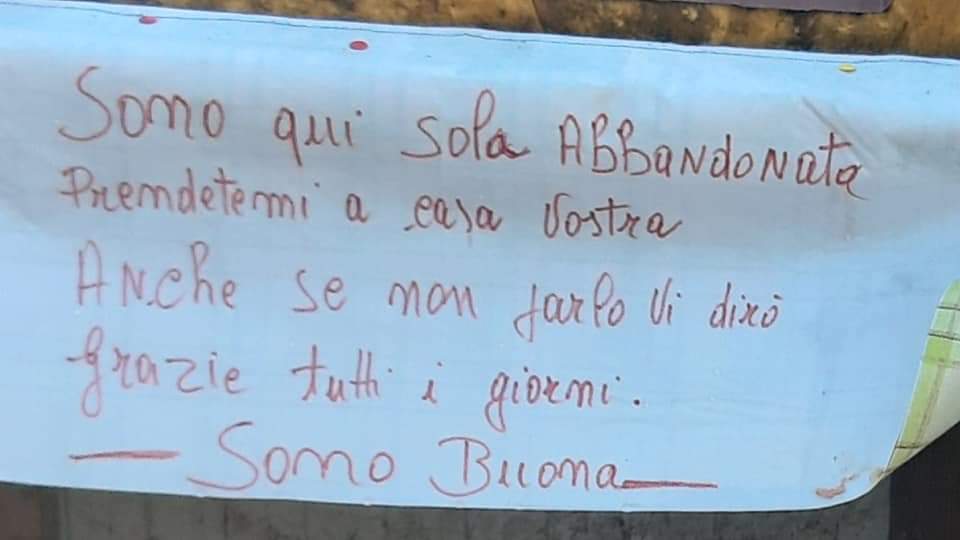 Sono qui sola ABBaNdoNata
Prendetemi a casa Vostra
ANche se non parlo Vi dirò
grazie tutti i giorni.
— Sono Buona —